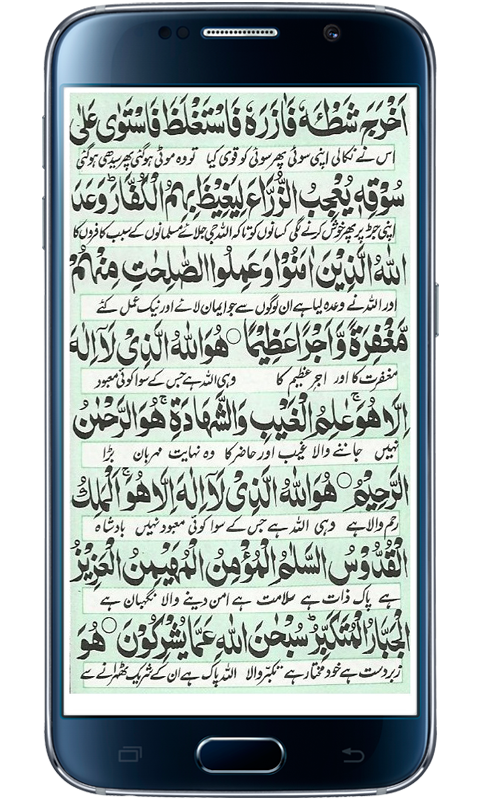 اَخْرَجَ شَطْـَٔهٗ فَاٰزَرَهٗ فَاسْتَغْلَظَ فَاسْتَوٰی عَلٰی
اس نے نکالی اپنی سوئی پھر سوئی کو قوی کیا تو وہ موٹی ہوگئی پھر سیدھی ہوگئی
سُوْقِهٖ یُعْجِبُ الزُّرَّاعَ لِیَغِیْظَ بِهِمُ الْكُفَّارَ ؕ وَعَدَ
اپنی جڑ پر پھر خوش کرنے لگی کسانوں کو تاکہ اللہ جی جلائے مسلمانوں کے سبب کافروں کا
اللّٰهُ الَّذِیْنَ اٰمَنُوْا وَعَمِلُوا الصّٰلِحٰتِ مِنْهُمْ
اور اللہ نے وعدہ لیا ہے ان لوگوں سے جو ایمان لائے اور نیک عمل کئے
مَّغْفِرَةً وَّاَجْرًا عَظِیْمًا ○ هُوَ اللّٰهُ الَّذِیْ لَاۤ اِلٰهَ
مغفرت کا اور اجر عظیم کا وہی اللہ ہے جس کے سوا کوئی معبود
اِلَّا هُوَ ۚ عٰلِمُ الْغَیْبِ وَالشَّهَادَةِ ۚ هُوَ الرَّحْمٰنُ
نہیں جاننے والا غیب اور حاضر کا وہ نہایت مہربان بڑا
الرَّحِیْمُ ○ هُوَ اللّٰهُ الَّذِیْ لَاۤ اِلٰهَ اِلَّا هُوَ ۚ اَلْمَلِكُ
رحم والا ہے وہی اللہ ہے جس کے سوا کوئی معبود نہیں بادشاہ
الْقُدُّوْسُ السَّلٰمُ الْمُؤْمِنُ الْمُهَیْمِنُ الْعَزِیْزُ
ہے پاک ذات ہے سلامت ہے امن دینے والا نگہبان ہے
الْجَبَّارُ الْمُتَكَبِّرُ ؕ سُبْحٰنَ اللّٰهِ عَمَّا یُشْرِكُوْنَ ○ هُوَ
زبردست ہے خود مختار ہے تکبر والا اللہ پاک ہے ان کے شریک ٹھہرانے سے